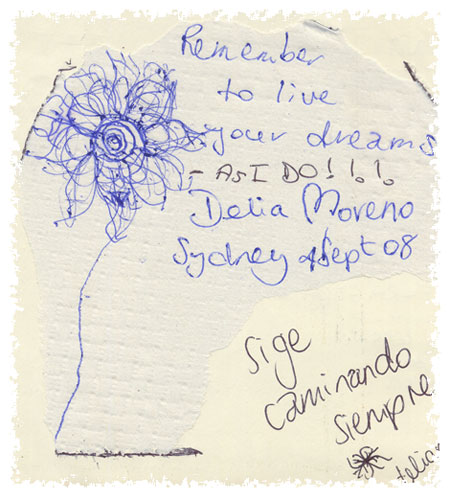 Remember
to live
your dreams
- AS I DO!!.!.
Delia Moreno
Sydney 4 Sept 08
Sige
caminando
siempre
Delia